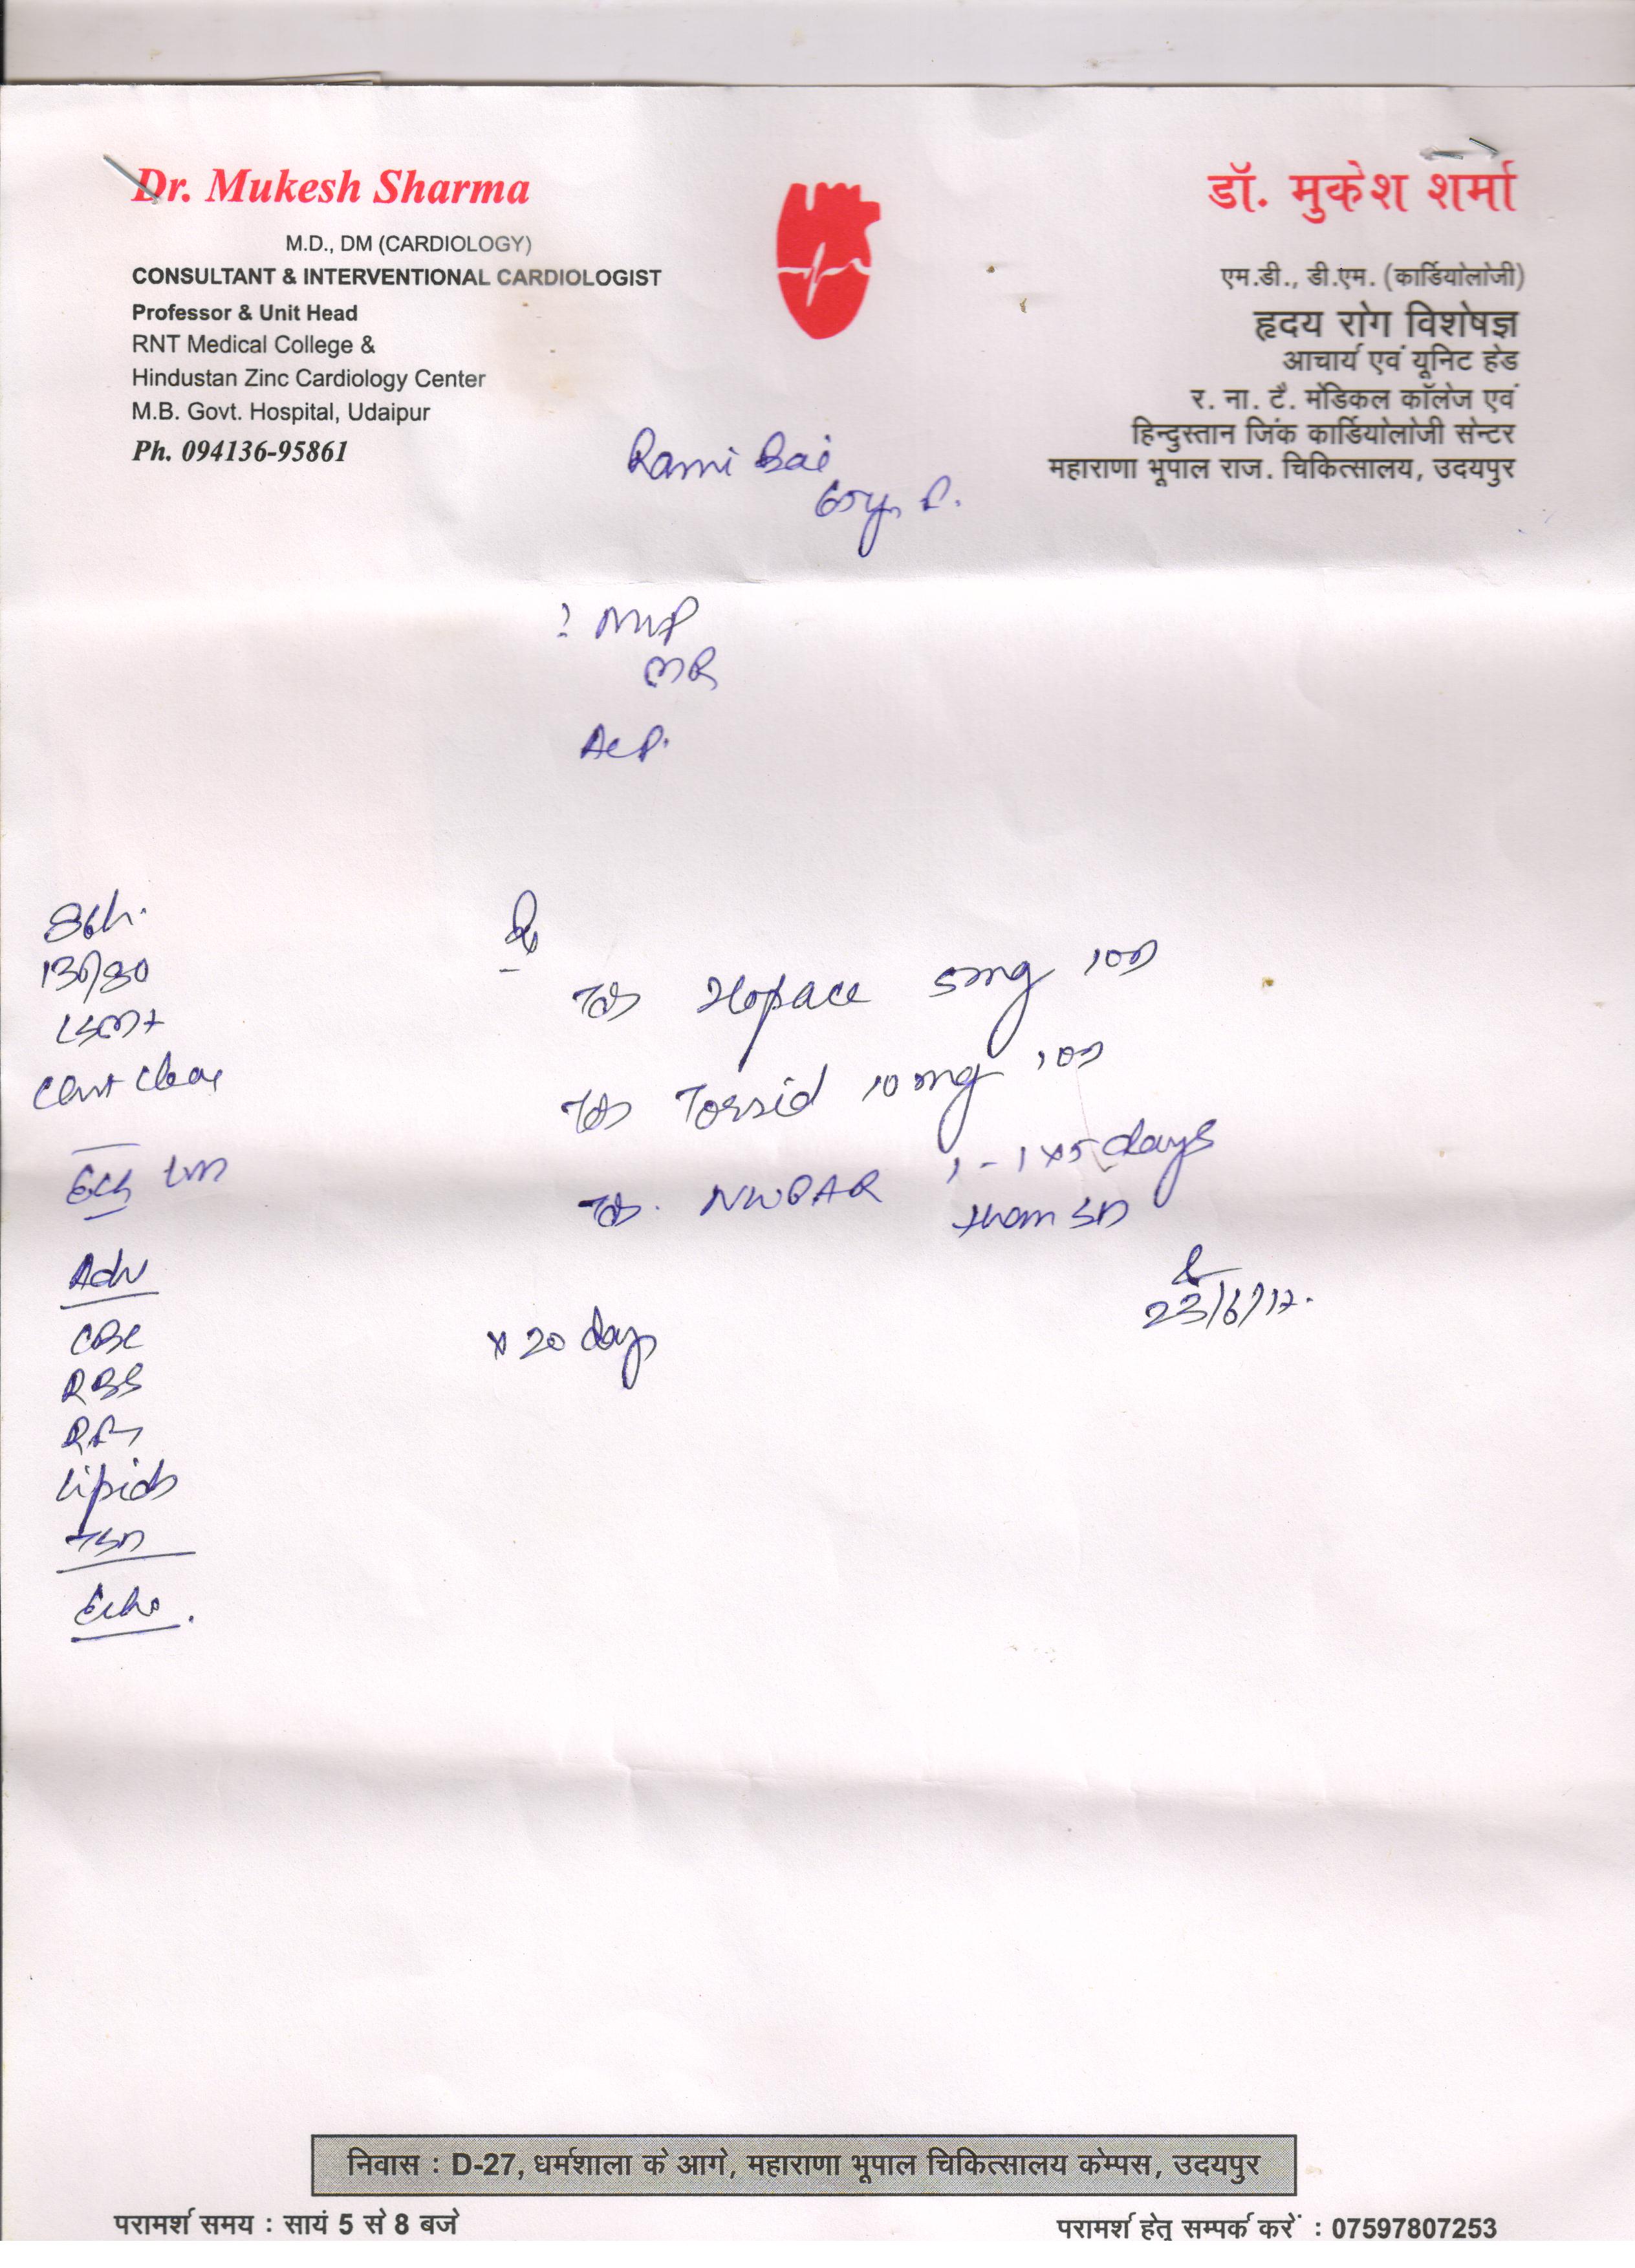 Dr. Mukesh Sharma
M.D., DM (CARDIOLOGY)
CONSULTANT & INTERVENTIONAL CARDIOLOGIST
Professor & Unit Head
RNT Medical College &
Hindustan Zinc Cardiology Center
M.B. Govt. Hospital, Udaipur
Ph. 094136-95861
डॉ. मुकेश शर्मा
एम.डी., डी.एम. (कार्डियोलोजी)
हृदय रोग विशेषज्ञ
आचार्य एवं यूनिट हेड
र. ना. टै. मेडिकल कॉलेज एवं
हिन्दुस्तान जिंक कार्डियोलोजी सेन्टर
महाराणा भूपाल राज. चिकित्सालय, उदयपुर
Rami Bai
? MVP
MR
130/80
Chest Clear
ECG
Adv
CBC
RBS
Lipids
Echo.
Hopace 5mg 1OD
Torsid 10mg 1OD
1-1 x 5 days
x 20 days
23/6/17.
निवास : D-27, धर्मशाला के आगे, महाराणा भूपाल चिकित्सालय केम्पस, उदयपुर
परामर्श समय : सायं 5 से 8 बजे
परामर्श हेतु सम्पर्क करें : 07597807253